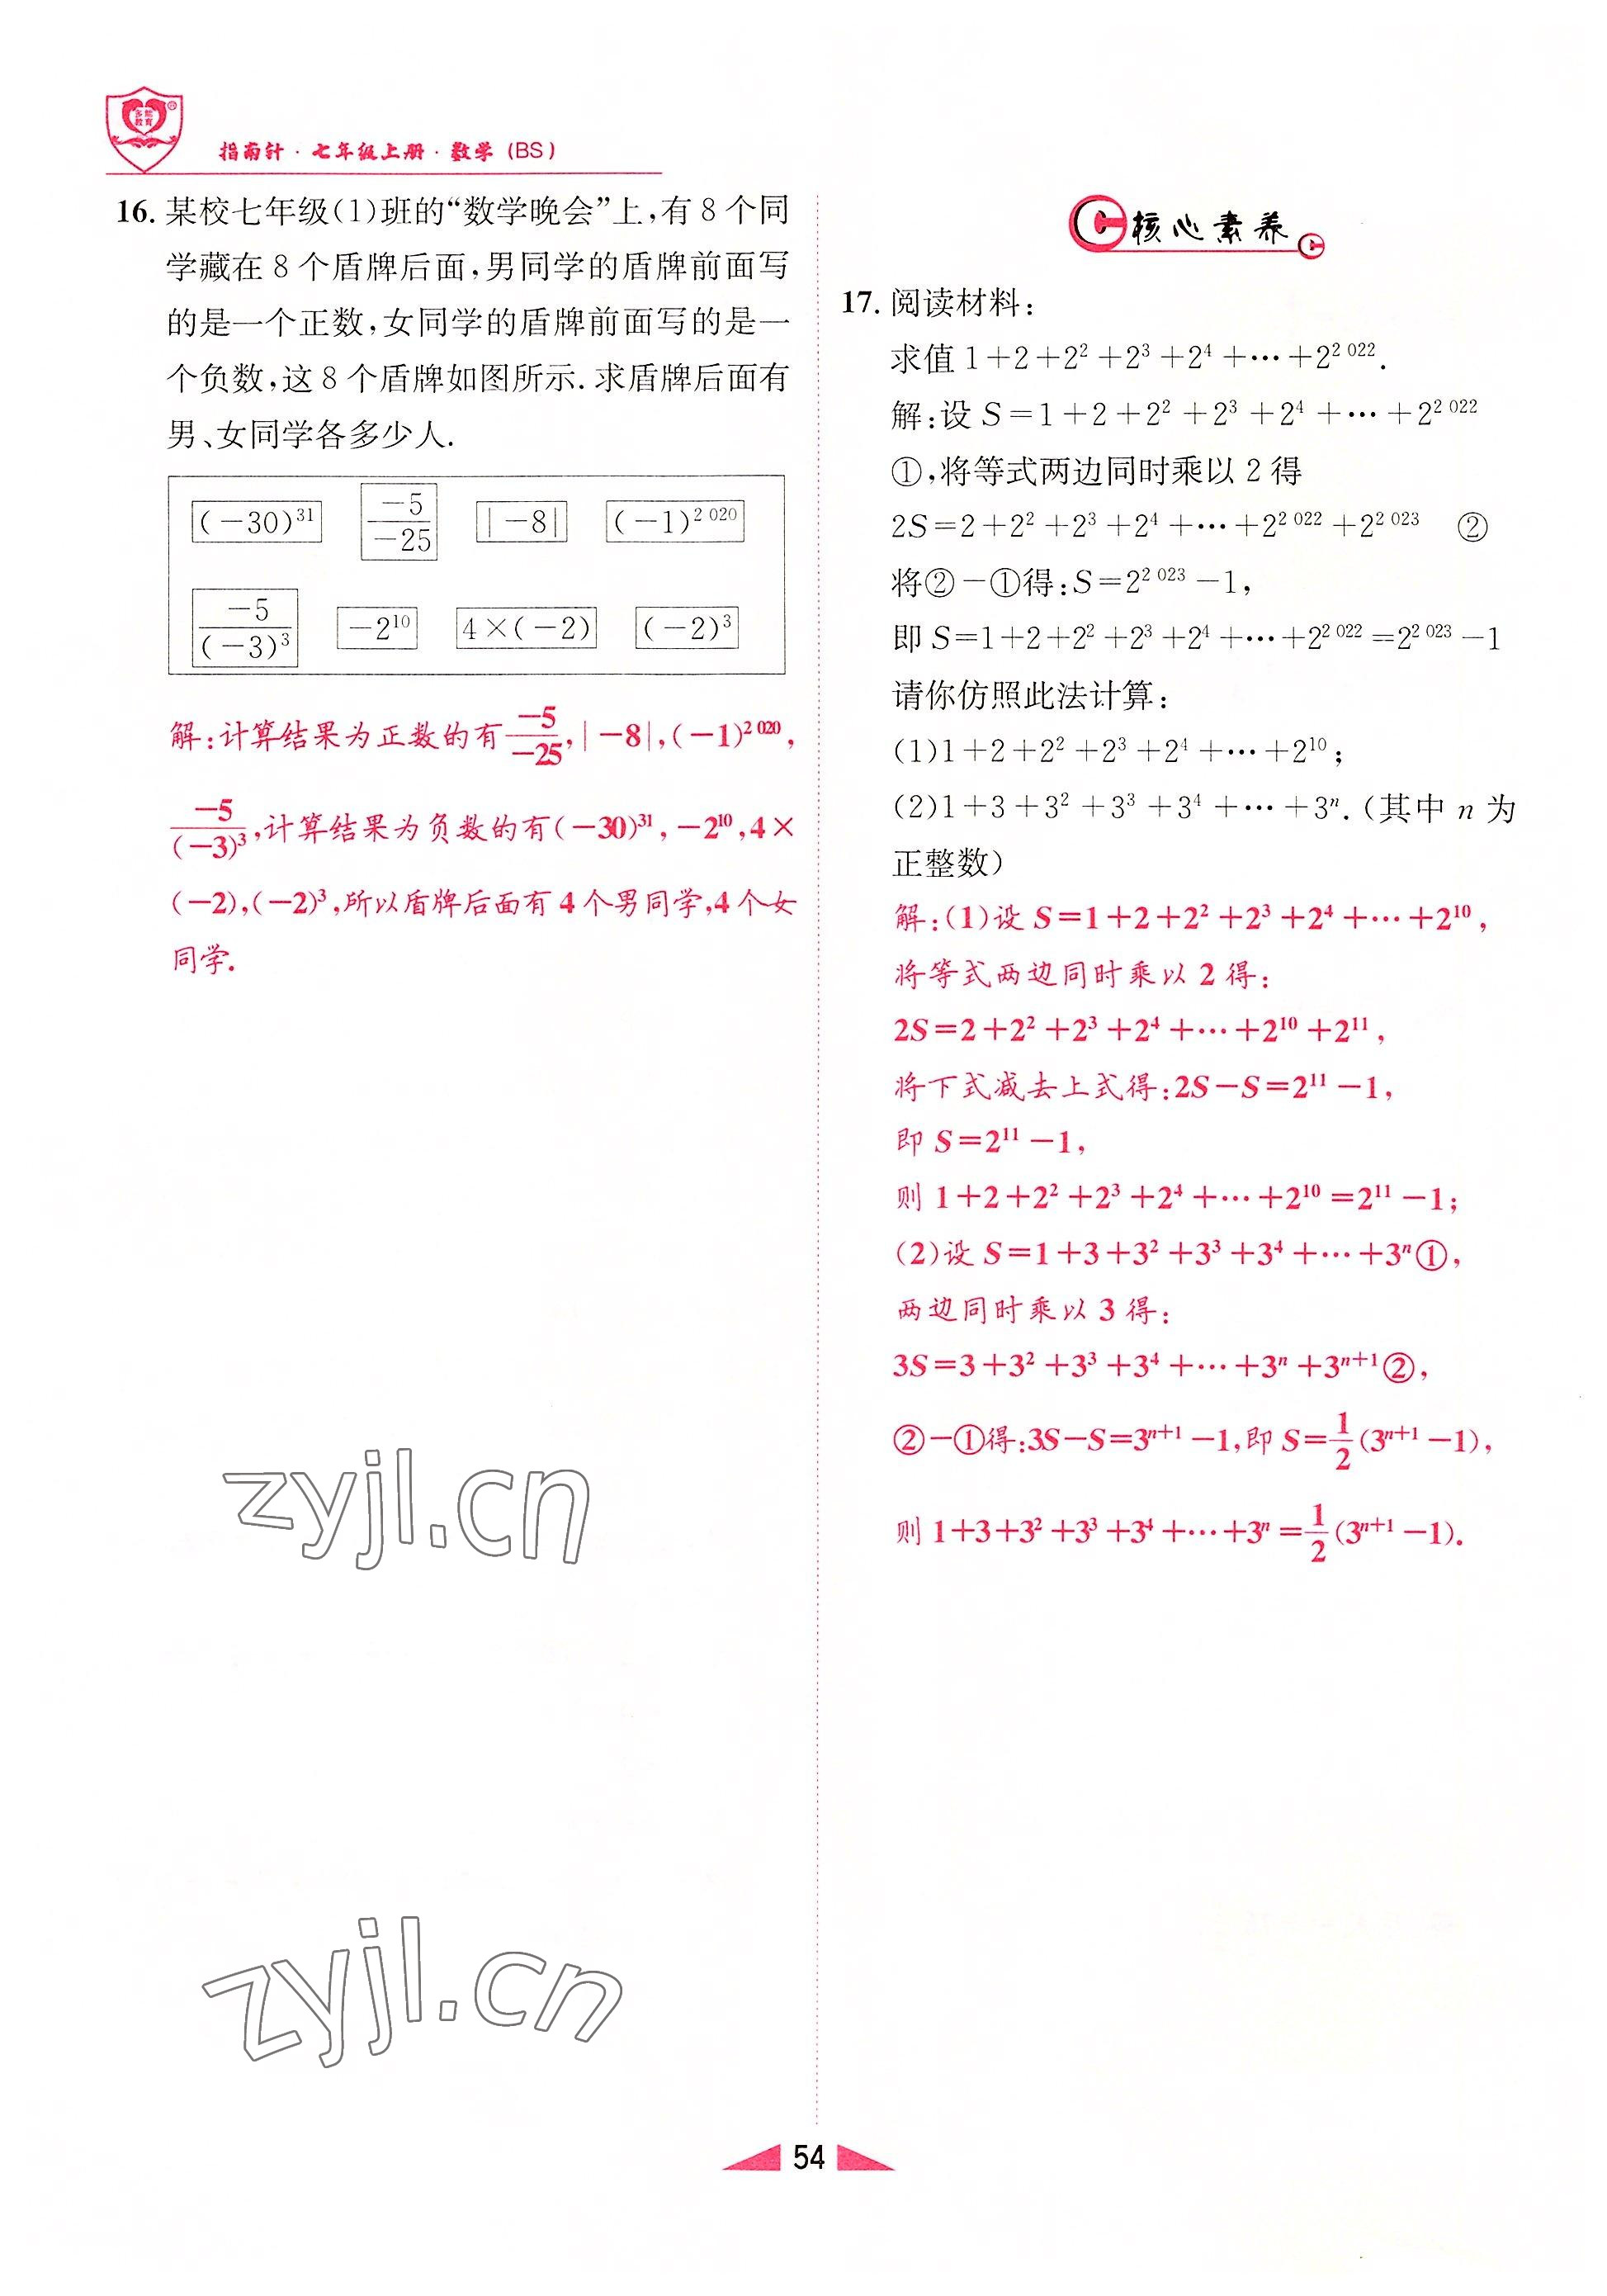 多能
教育
指南针·七年级上册·数学(BS)
16. 某校七年级(1)班的“数学晚会”上,有8个同
学藏在8个盾牌后面,男同学的盾牌前面写
的是一个正数,女同学的盾牌前面写的是一
个负数,这8个盾牌如图所示.求盾牌后面有
男、女同学各多少人.
(−30)³¹  −5/−25  |−8|  (−1)²⁰²⁰
−5/(−3)³  −2¹⁰  4×(−2)  (−2)³
解:计算结果为正数的有−5/−25,|−8|,(−1)²⁰²⁰,
−5/(−3)³,计算结果为负数的有(−30)³¹,−2¹⁰,4×
(−2),(−2)³,所以盾牌后面有4个男同学,4个女
同学.
核心素养
17. 阅读材料:
求值1+2+2²+2³+2⁴+…+2²⁰²².
解:设S=1+2+2²+2³+2⁴+…+2²⁰²²
①,将等式两边同时乘以2得
2S=2+2²+2³+2⁴+…+2²⁰²²+2²⁰²³ ②
将②−①得:S=2²⁰²³−1,
即S=1+2+2²+2³+2⁴+…+2²⁰²²=2²⁰²³−1
请你仿照此法计算:
(1)1+2+2²+2³+2⁴+…+2¹⁰;
(2)1+3+3²+3³+3⁴+…+3ⁿ.(其中n为
正整数)
解:(1)设S=1+2+2²+2³+2⁴+…+2¹⁰,
将等式两边同时乘以2得:
2S=2+2²+2³+2⁴+…+2¹⁰+2¹¹,
将下式减去上式得:2S−S=2¹¹−1,
即S=2¹¹−1,
则1+2+2²+2³+2⁴+…+2¹⁰=2¹¹−1;
(2)设S=1+3+3²+3³+3⁴+…+3ⁿ①,
两边同时乘以3得:
3S=3+3²+3³+3⁴+…+3ⁿ+3ⁿ⁺¹②,
②−①得:3S−S=3ⁿ⁺¹−1,即S=1/2(3ⁿ⁺¹−1),
则1+3+3²+3³+3⁴+…+3ⁿ=1/2(3ⁿ⁺¹−1).
zyjl.cn
zyjl.cn
54